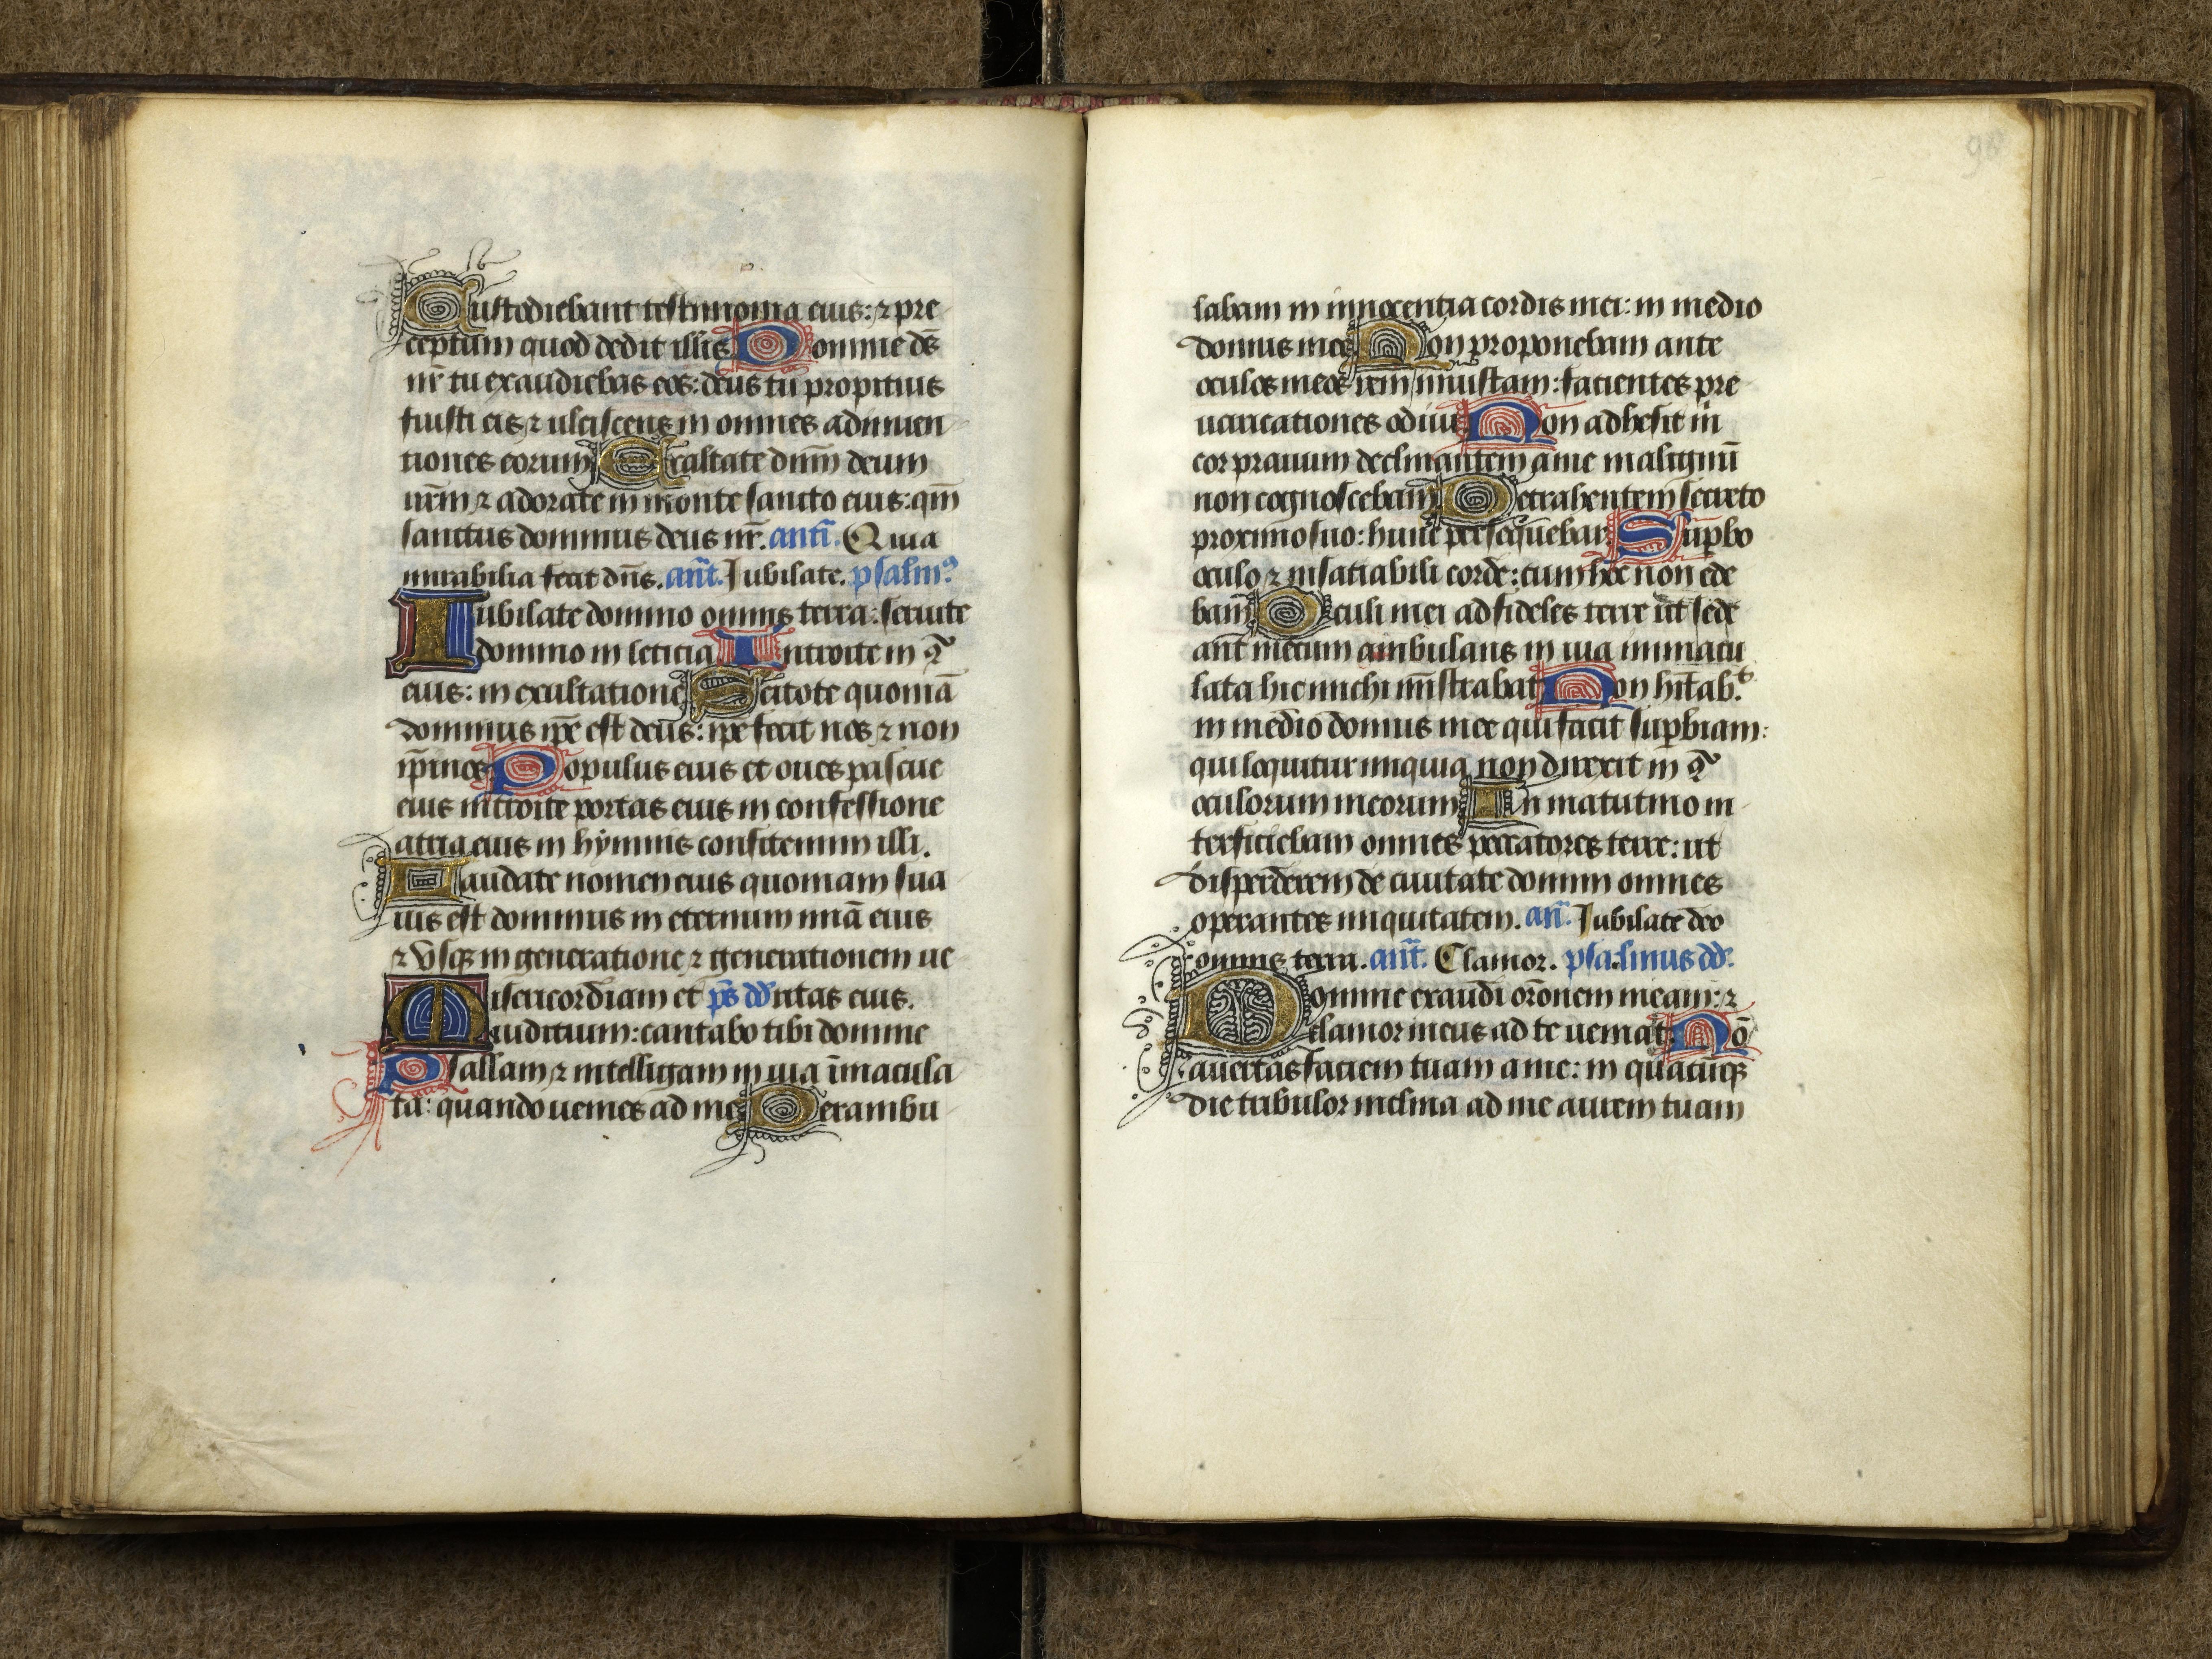 Custodiebant testimonia eius: ⁊ pre
ceptum quod dedit illis Domine ds̄
nr̄ tu exaudiebas eos: deus tu propitius
fuisti eis ⁊ ulciscens in omnes adinuen
tiones eorum Exaltate dnm̄ deum
nr̄m ⁊ adorate in monte sancto eius: qm̄
sanctus dominus deus nr̄. antī. Quia
mirabilia fecit dn̄s. ant̄. Iubilate. psalmꝰ
Iubilate domino omnis terra: seruite
domino in leticia Introite in ꝯ̄
eius: in exultatione Scitote quoniā
dominus ip̄e est deus: ip̄e fecit nos ⁊ non
ip̄i nos Populus eius et oues pascue
eius introite portas eius in confessione
atria eius in hymnis confitemini illi.
Laudate nomen eius quoniam sua
uis est dominus in eternum mīa eius
⁊ vsqꝫ in generatione ⁊ generationem ue
Misericordiam et ps̄ dd̄ ritas eius.
iudicium: cantabo tibi domine
Psallam ⁊ intelligam in uia īmacula
ta: quando uenies ad me Perambu
90
labam in innocentia cordis mei: in medio
domus mee Non proponebam ante
oculos meos rem iniustam: facientes pre
uaricationes odiui Non adhesit m̄
cor prauum declinantem a me malignū
non cognoscebam Detrahentem secreto
proximo suo: hunc persequebar Suꝑbo
oculo ⁊ insatiabili corde: cum hoc non ede
bam Oculi mei ad fideles terre ut sede
ant̄ mecum ambulans in uia immacu
lata hic michi mīstrabat Non hīt̄ab.ᵗ
in medio domus mee qui facit suꝑbiam:
qui loquitur iniqua non direxit in ꝯ̄
oculorum meorum In matutino in
terficiebam omnes peccatores terre: ut
disperderem de ciuitate domini omnes
operantes iniquitatem. an̄. Iubilate deo
omnis terra. ant̄. Clamor. psalmus dd̄.
Domine exaudi orōnem meam: ⁊
clamor meus ad te ueniat Nō
auertas faciem tuam a me: in quacūqꝫ
die tribulor inclina ad me aurem tuam